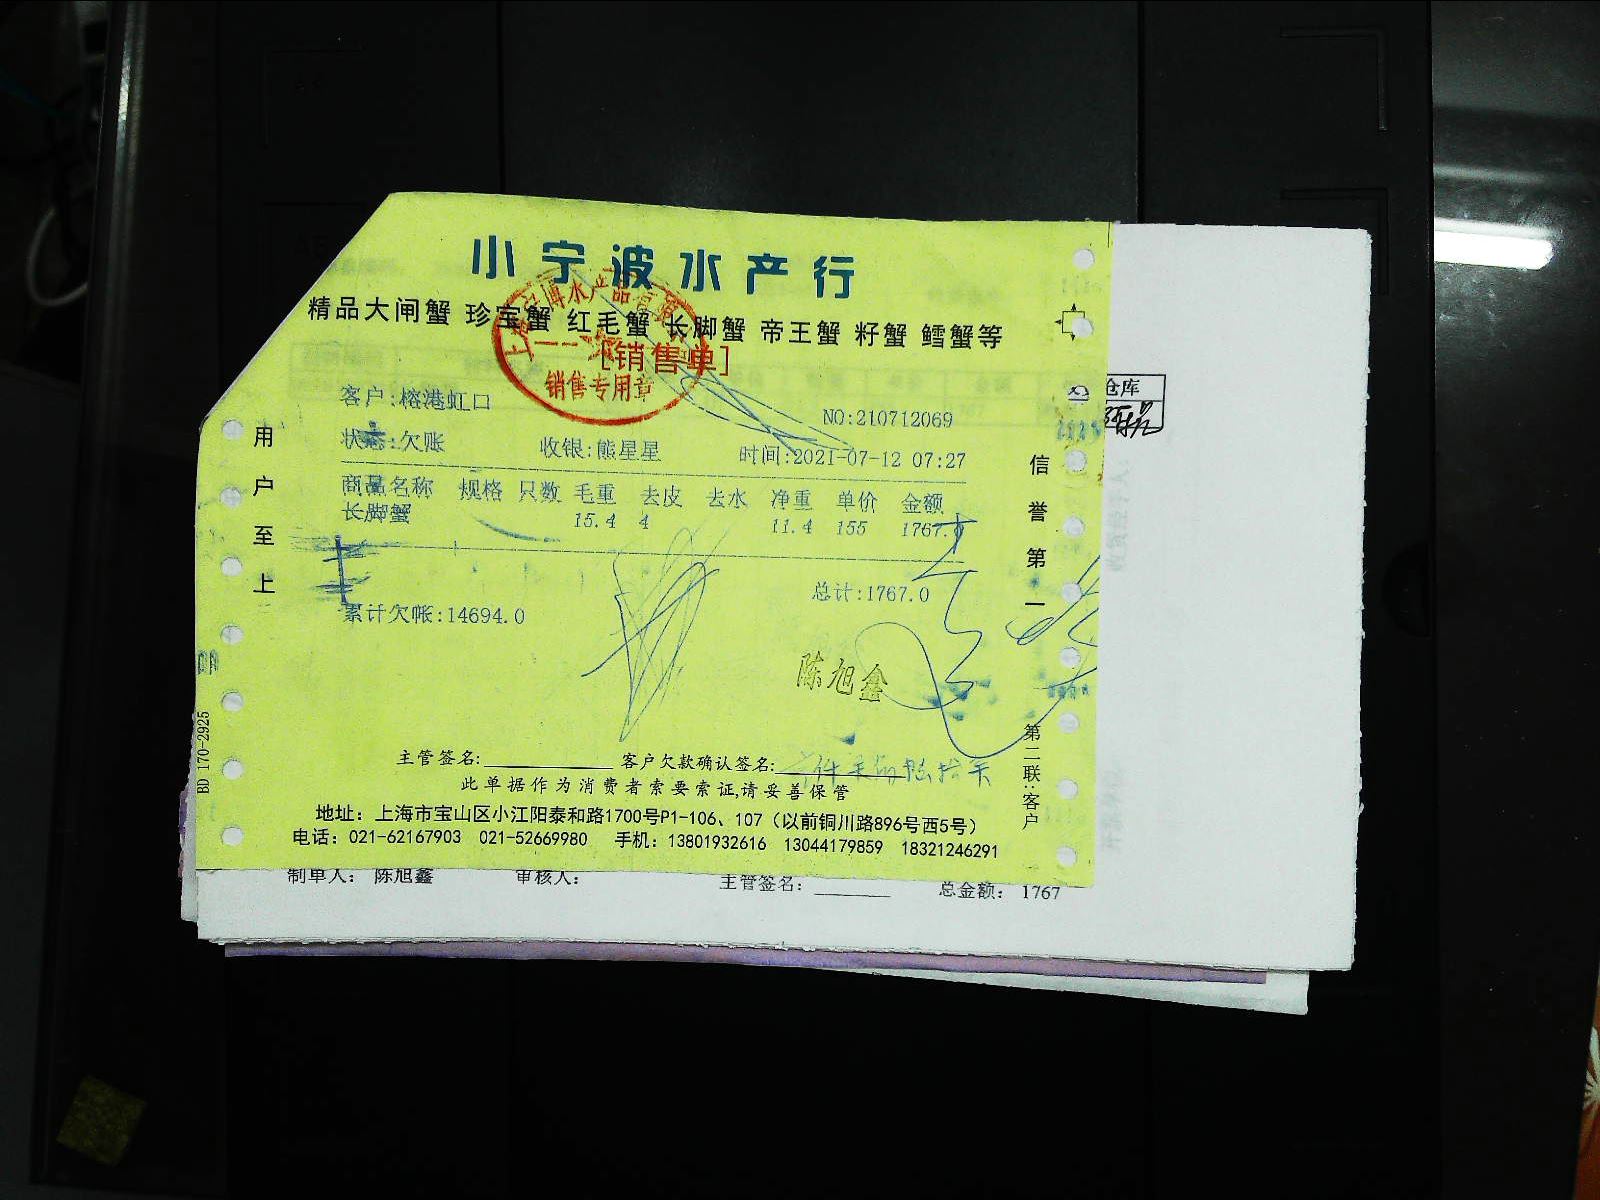 小宁波水产行
精品大闸蟹 珍宝蟹 红毛蟹 长脚蟹 帝王蟹 籽蟹 鳕蟹等
[销售单]
销售专用章
客户:榕港虹口
NO:210712069
状态:欠账 收银:熊星星 时间:2021-07-12 07:27
商品名称 规格 只数 毛重 去皮 去水 净重 单价 金额
长脚蟹 15.4 4 11.4 155 1767.0
总计:1767.0
累计欠帐:14694.0
陈旭鑫
主管签名: 客户欠款确认签名:
此单据作为消费者索要索证,请妥善保管
地址：上海市宝山区小江阳泰和路1700号P1-106、107（以前铜川路896号西5号）
电话：021-62167903 021-52669980 手机：13801932616 13044179859 18321246291
用户至上
BD 170-2925
信誉第一
第二联:客户
仓库
制单人： 陈旭鑫 审核人： 主管签名： 总金额： 1767